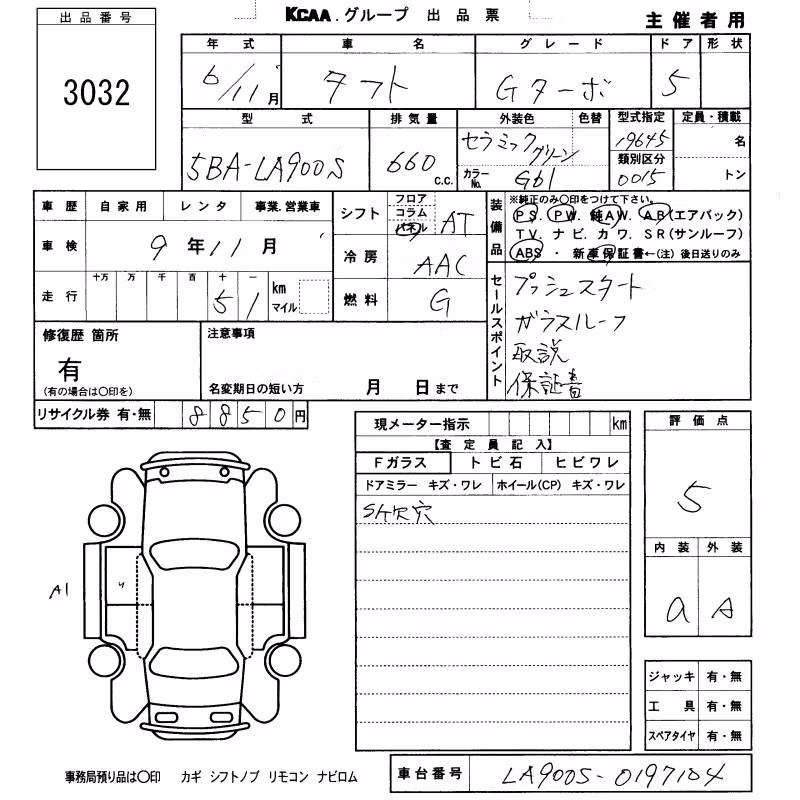 出品番号
3032
KCAA.グループ 出品票
主催者用
年式 車名 グレード ドア 形状
6/11月 タフト Gターボ 5
型式 排気量 外装色 色替 型式指定 定員・積載
5BA-LA900S 660 c.c. セラミックグリーン 19645 名
カラーNo. G61 類別区分 0015 トン
車歴 自家用 レンタ 事業.営業車
車検 9年11月
走行 十万 万 千 百 十 一 km マイル
51
シフト フロア コラム パネル AT
冷房 AAC
燃料 G
装備品
※純正のみ○印をつけて下さい。
PS. PW. 純AW. AB(エアバック)
TV. ナビ. カワ. SR(サンルーフ)
ABS・新車保証書←(注)後日送りのみ
セールスポイント
プッシュスタート
ガラスルーフ
取説
保証書
修復歴 箇所
有
(有の場合は○印を)
注意事項
名変期日の短い方 月 日まで
リサイクル券 有・無 8850円
現メーター指示 km
【査定員記入】
Fガラス トビ石 ヒビワレ
ドアミラー キズ・ワレ ホイール(CP) キズ・ワレ
Sル欠穴
A1
評価点
5
内装 外装
a A
ジャッキ 有・無
工具 有・無
スペアタイヤ 有・無
事務局預り品は○印 カギ シフトノブ リモコン ナビロム
車台番号 LA900S-0197104